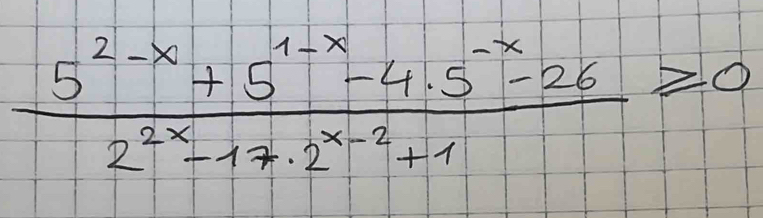 5^{2-x} + 5^{1-x} - 4 \cdot 5^{-x} - 26
―――――――――――――――― ≥ 0
2^{2x} - 17 \cdot 2^{x-2} + 1